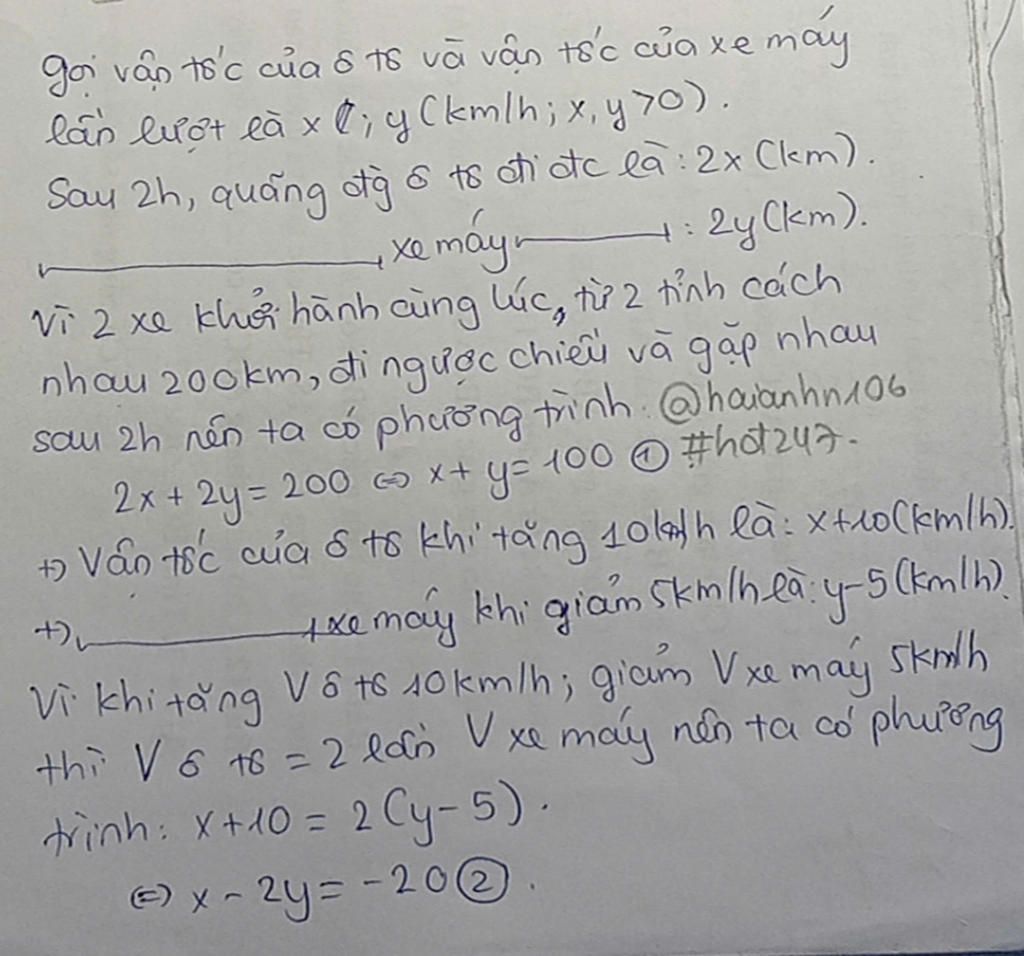 gọi vận tốc của ô tô và vận tốc của xe máy
lần lượt là x ; y (km/h ; x, y > 0).
Sau 2h, quãng đg ô tô đi đc là : 2x (km).
xe máy : 2y (km).
Vì 2 xe khởi hành cùng lúc, từ 2 tỉnh cách
nhau 200km, đi ngược chiều và gặp nhau
sau 2h nên ta có phương trình: @haianhn106
2x + 2y = 200 <=> x + y = 100 ① #hot247.
+) Vận tốc của ô tô khi tăng 10km/h là : x+10 (km/h).
+) xe máy khi giảm 5km/h là : y-5 (km/h).
Vì khi tăng V ô tô 10km/h ; giảm V xe máy 5km/h
thì V ô tô = 2 lần V xe máy nên ta có phương
trình : x+10 = 2(y-5).
<=> x - 2y = -20 ②.